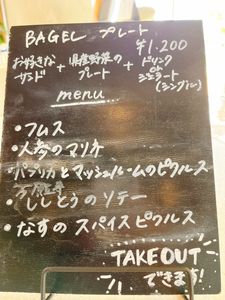 BAGEL プレート
¥1.200
お好きな サンド + 県産野菜の プレート + ドリンク or ジェラート (シングル)
menu
・フムス
・人参のマリネ
・パプリカとマッシュルームのピクルス
万願寺
・ししとうのソテー
・なすの スパイスピクルス
TAKEOUT
できます!